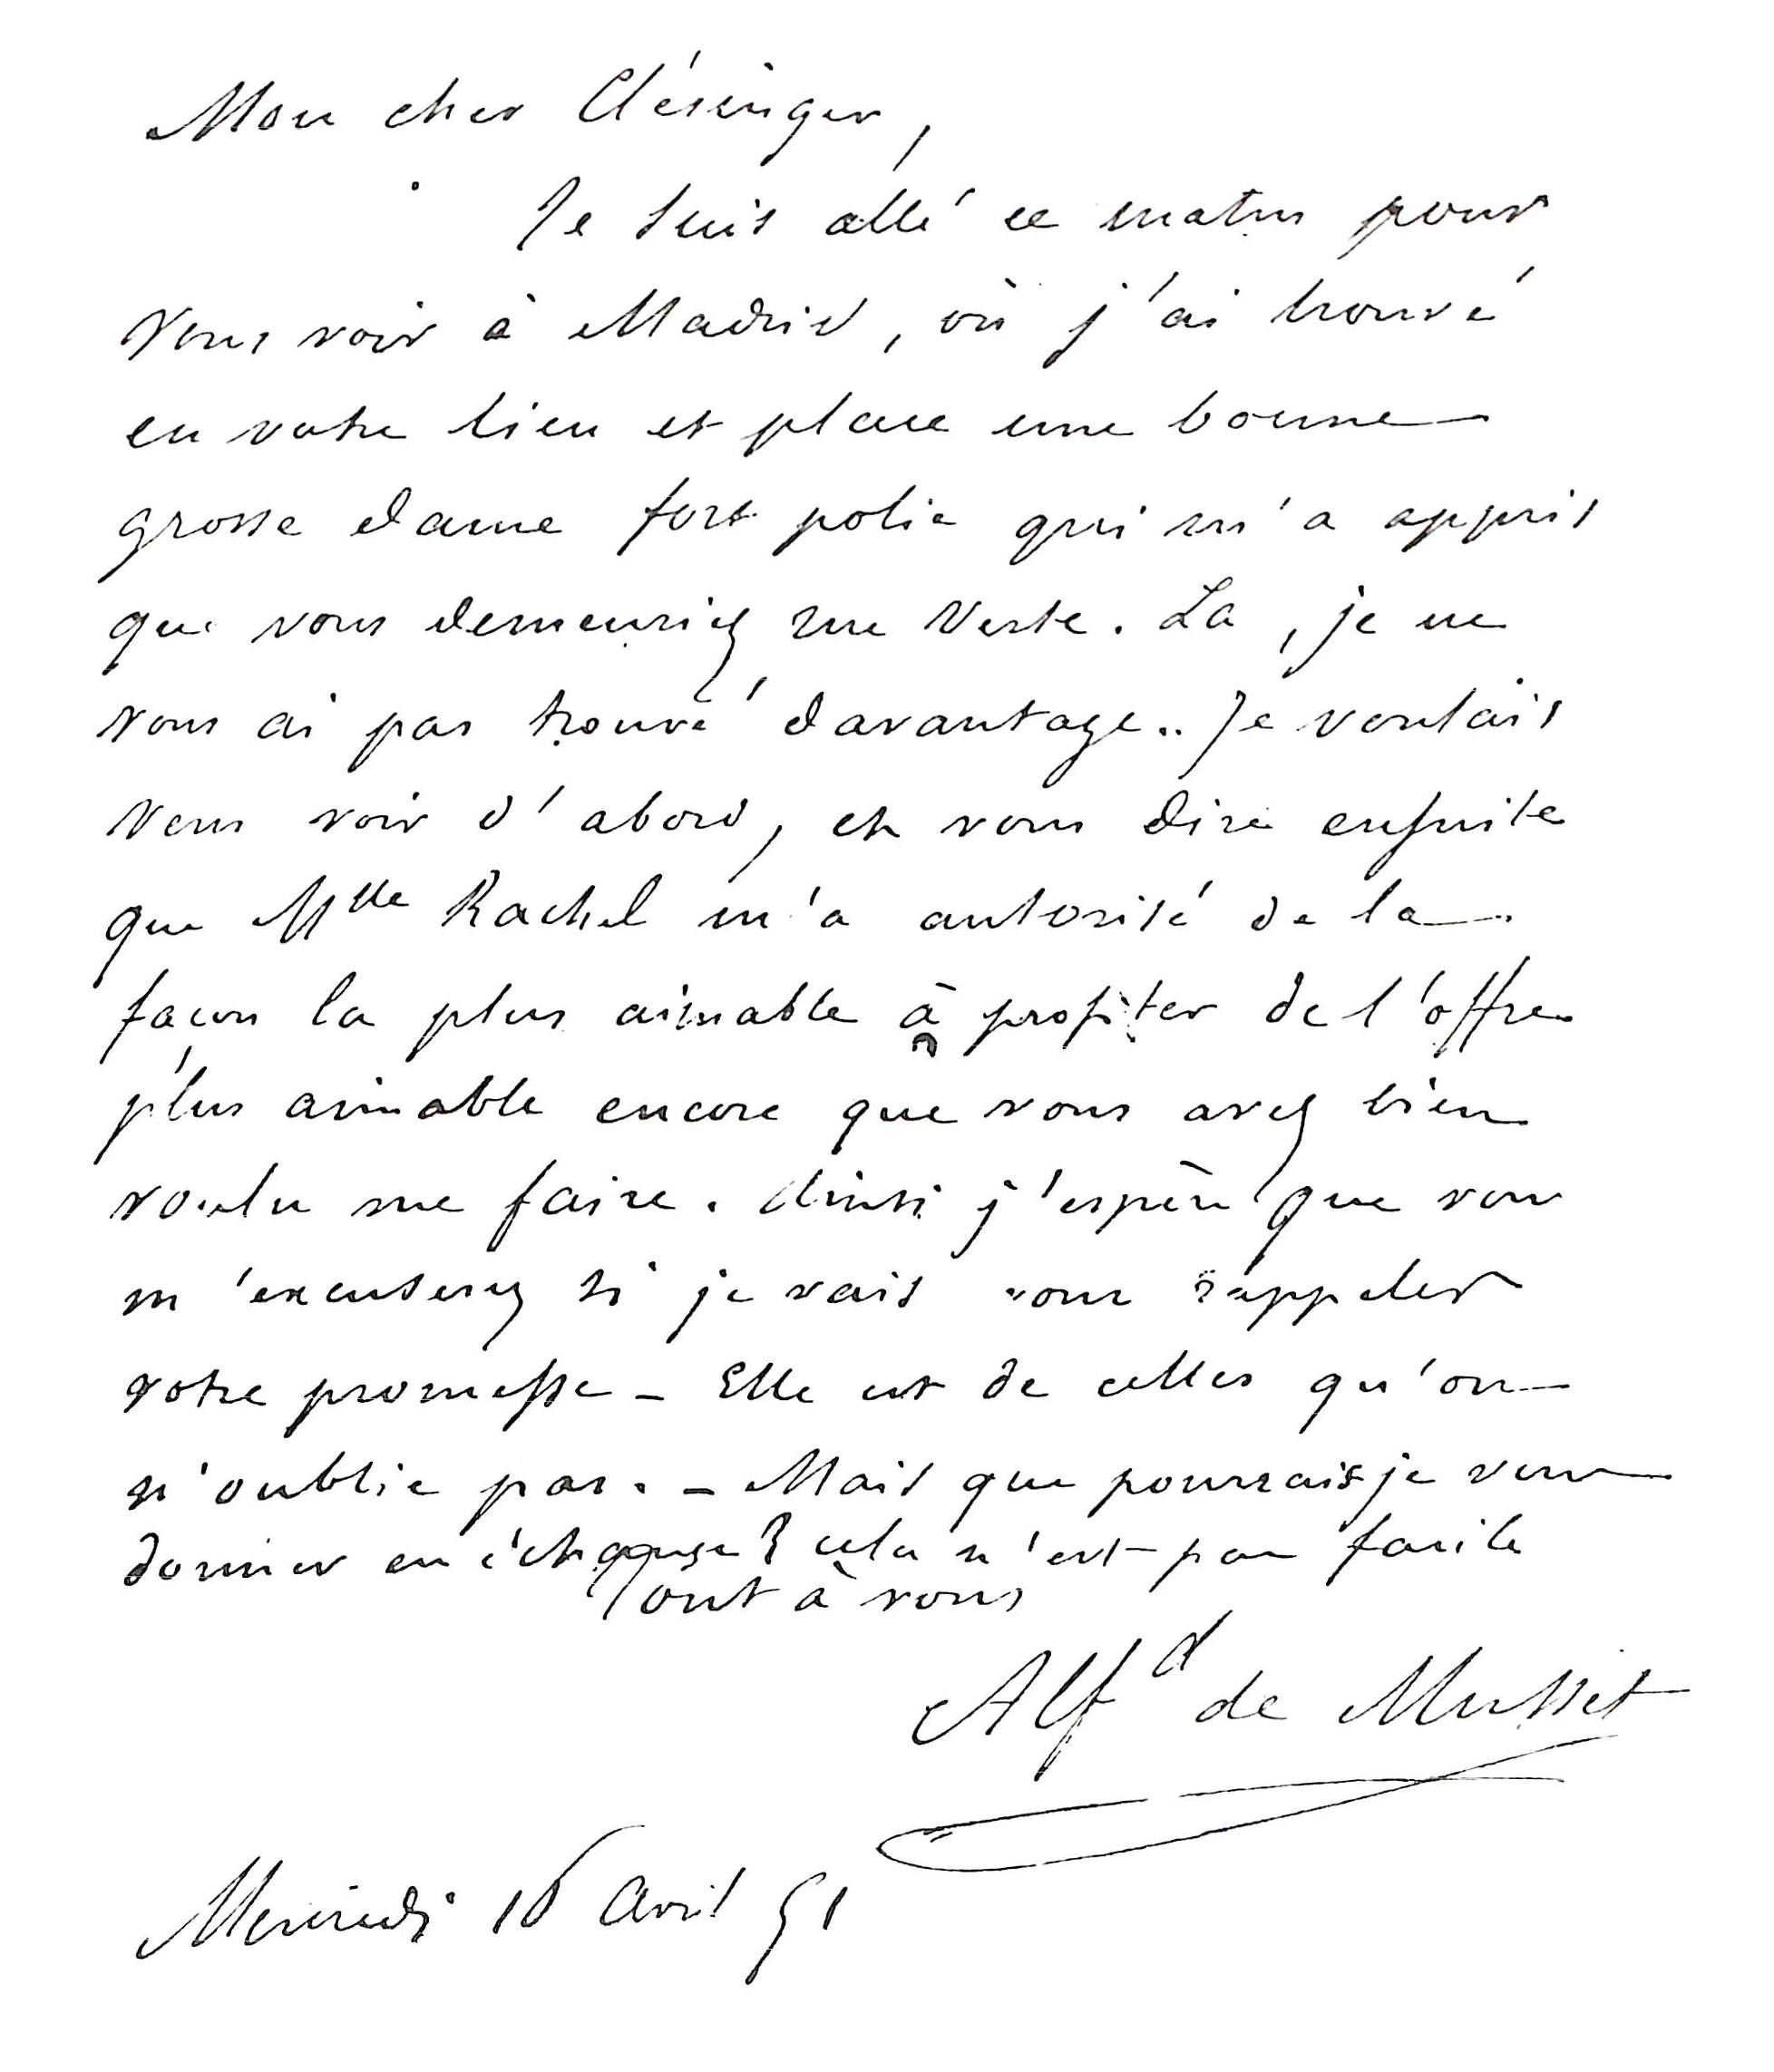 Mon cher Clésinger,
Je suis allé ce matin pour
vous voir à Madrid, où j'ai trouvé
en votre lieu et place une bonne
grosse dame fort polie qui m'a appris
que vous demeuriez rue Verte. Là, je ne
vous ai pas trouvé davantage.. Je voulais
vous voir d'abord, et vous dire ensuite
que Mlle Rachel m'a autorisé de la
façon la plus aimable à profiter de l'offre
plus aimable encore que vous avez bien
voulu me faire. Ainsi j'espère que vous
m'excuserez si je vais vous rappeler
votre promesse - Elle est de celles qu'on
n'oublie pas. - Mais que pourrais je vous
donner en échange? cela n'est pas facile
Tout à vous
Alfd de Musset
Mercredi 16 avril 51